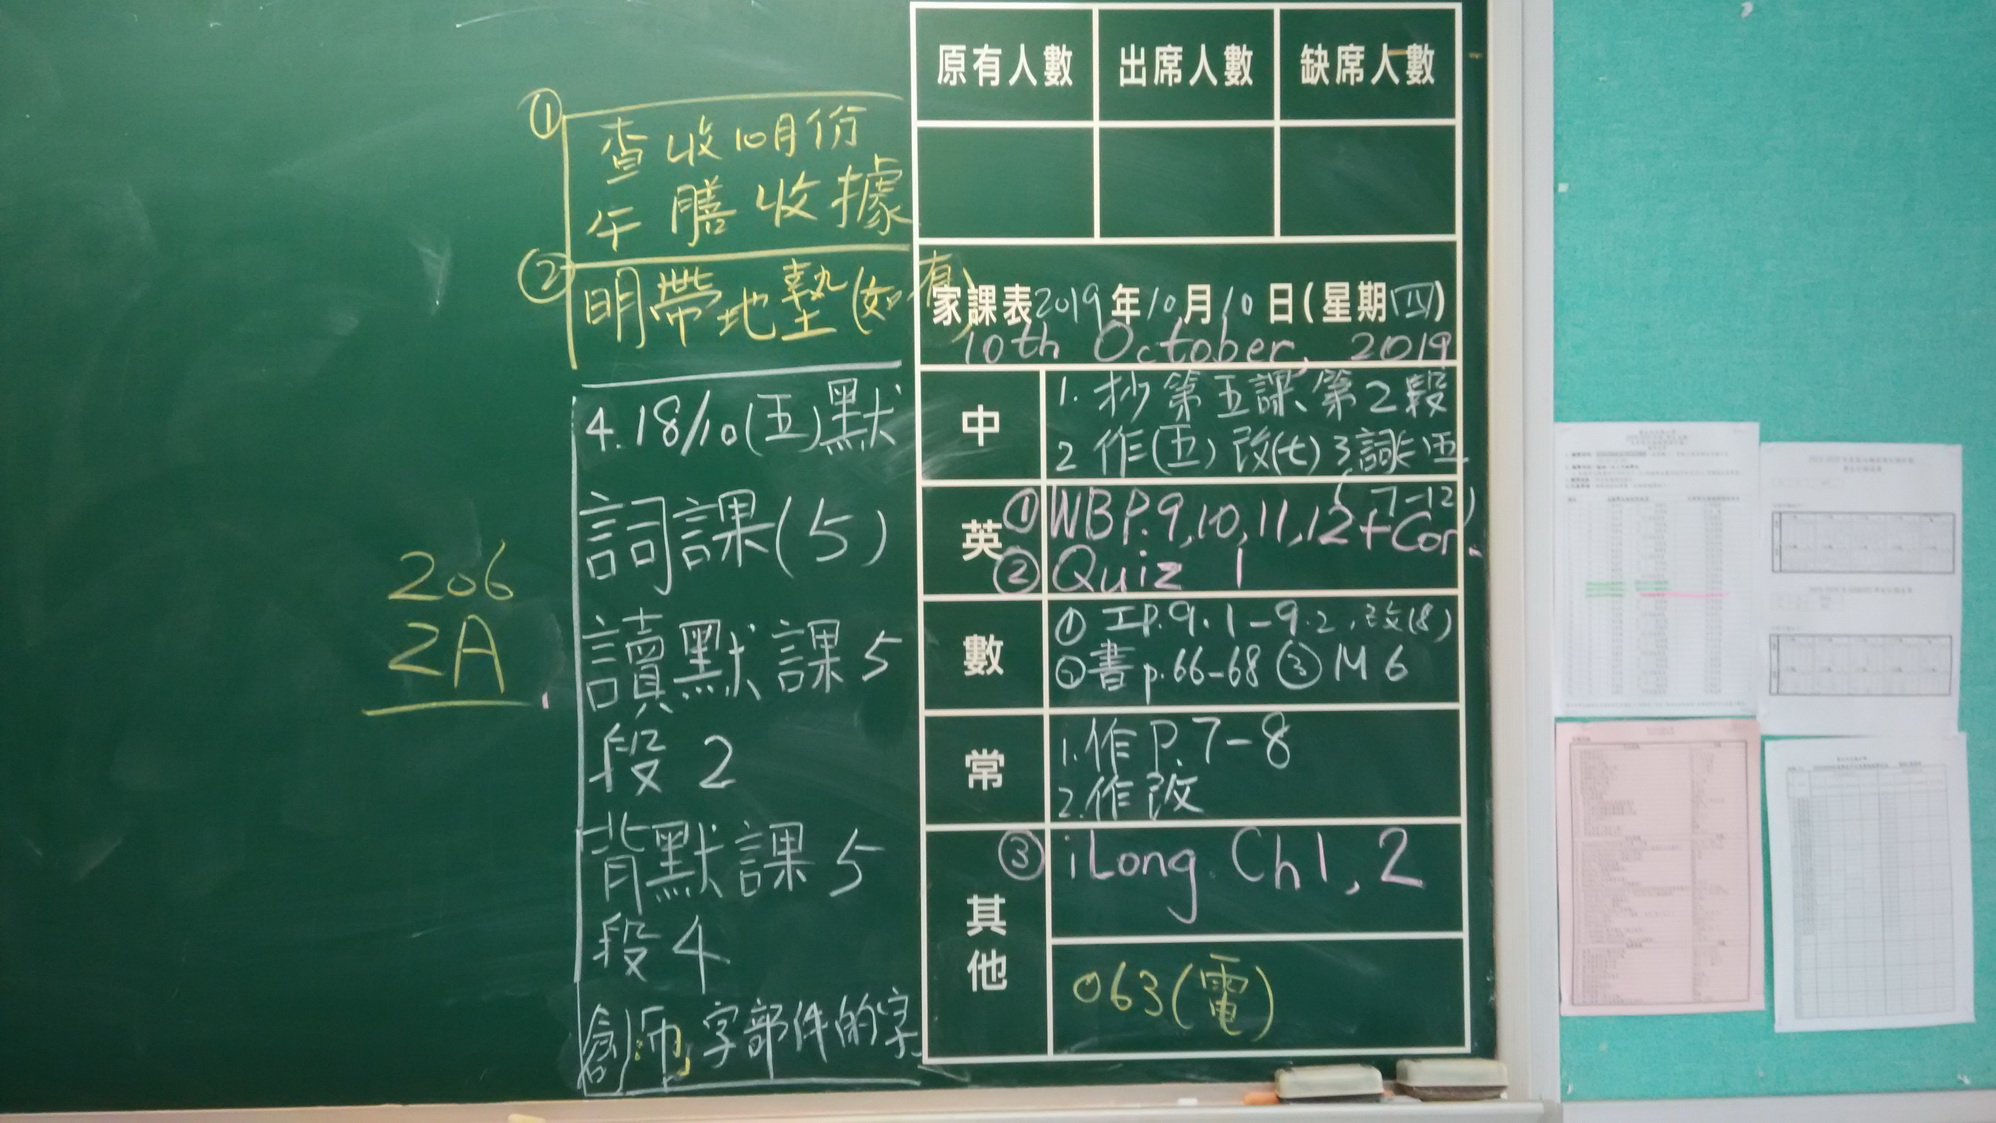 原有人數 出席人數 缺席人數
① 查收10月份
午膳收據
② 明帶地墊(如有)
家課表2019年10月10日(星期四)
10th October, 2019
中
1. 抄第五課、第2段
2 作(五)改(七) 3詞(五
英
① WBP.9,10,11,12+Cor.
(7-12)
② Quiz 1
數
① 工P.9.1-9.2,改(8)
②書p.66-68 ③M6
常
1.作P.7-8
2.作改
其他
③ iLong Ch1, 2
063(電)
4.18/10(五)默
詞課(5)
讀默課5
段2
背默課5
段4
字部件的字
206
2A